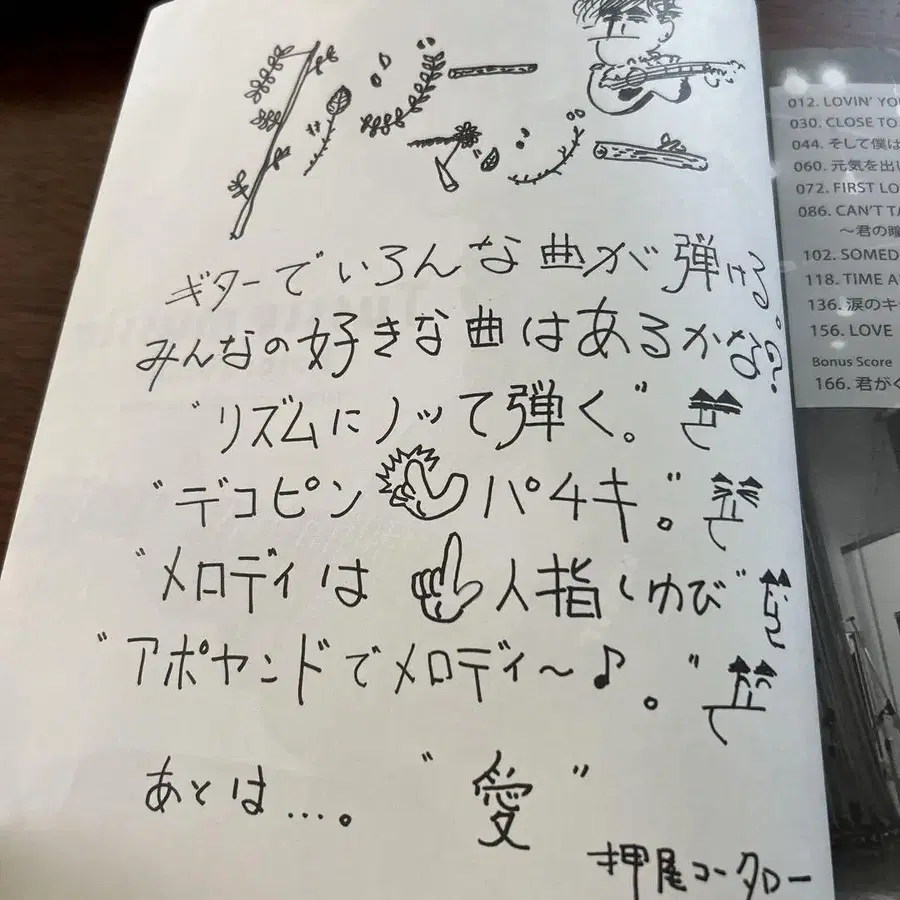 ギターでいろんな曲が弾ける。
みんなの好きな曲はあるかな?
"リズムにノッて弾く。"
"デコピンパチキ。"
"メロディは人指しゆび"
"アポヤンドでメロディ〜♪。"
あとは…。"愛"
押尾コータロー
012. LOVIN' YO
030. CLOSE TO
044. そして僕は
060. 元気を出し
072. FIRST LO
086. CAN'T TA
〜君の瞳
102. SOMED
118. TIME A
136. 涙のキ
156. LOVE
Bonus Score
166. 君がく